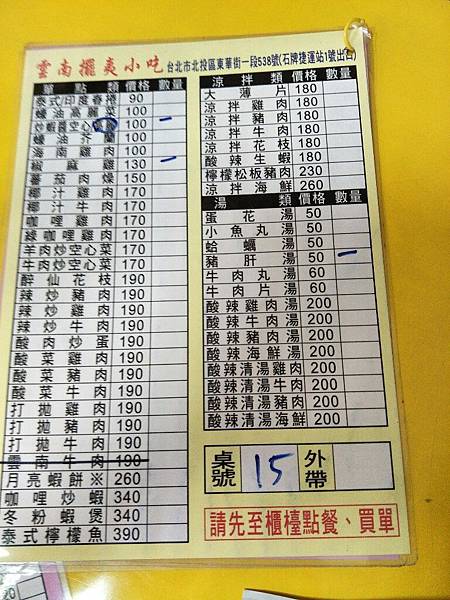 雲南擺夷小吃 台北市北投區東華街一段538號(石牌捷運站1號出口)
單點類 價格 數量
泰式/印度春捲 90
蠔油高麗菜 100
炒蝦醬空心 100
蠔油芥蘭 100
海南雞肉 100
椒麻雞 130
蕃茄肉燥 150
椰汁雞肉 170
椰汁牛肉 170
咖哩雞肉 170
綠咖哩雞肉 170
羊肉炒空心菜 170
牛肉炒空心菜 170
醉仙花枝 190
辣炒豬肉 190
辣炒雞肉 190
辣炒牛肉 190
酸肉炒蛋 190
酸菜雞肉 190
酸菜豬肉 190
酸菜牛肉 190
打拋雞肉 190
打拋豬肉 190
打拋牛肉 190
雲南牛肉 190
月亮蝦餅※ 260
咖哩炒蝦 340
冬粉蝦煲 340
泰式檸檬魚 390
涼拌類 價格 數量
大薄片 180
涼拌雞肉 180
涼拌豬肉 180
涼拌牛肉 180
涼拌花枝 180
酸辣生蝦 180
檸檬松板豬肉 230
涼拌海鮮 260
湯類 價格 數量
蛋花湯 50
小魚丸湯 50
蛤蠣湯 50
豬肝湯 50
牛肉丸湯 60
牛肉片湯 60
酸辣雞肉湯 200
酸辣牛肉湯 200
酸辣豬肉湯 200
酸辣海鮮湯 200
酸辣清湯雞肉 200
酸辣清湯牛肉 200
酸辣清湯豬肉 200
酸辣清湯海鮮 200
桌號 15 外帶
請先至櫃檯點餐、買單